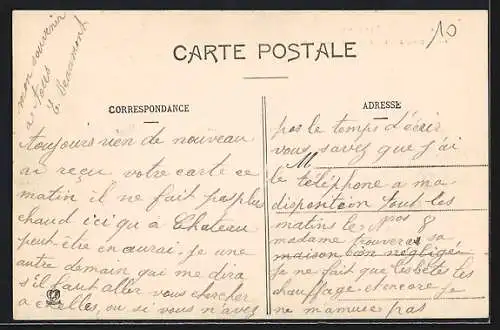 mon souvenir
à tous
E. Beaumont
10
CARTE POSTALE
CORRESPONDANCE
toujours rien de nouveau
ai reçu votre carte ce
matin il ne fait pas plus
chaud ici qu'à Chateau
peut-être en aurai-je une
autre demain qui me dira
s'il faut aller vous chercher
a ou si vous n'avez
ADRESSE
pas le temps d'écrir
vous savez que j'ai
M
le téléphone a ma
disposition tout les
matins le gros 8
madame trouvera sa
maison bien négligée
je ne fait que les bêtes les
chauffage encore je
ne m'amuse pas